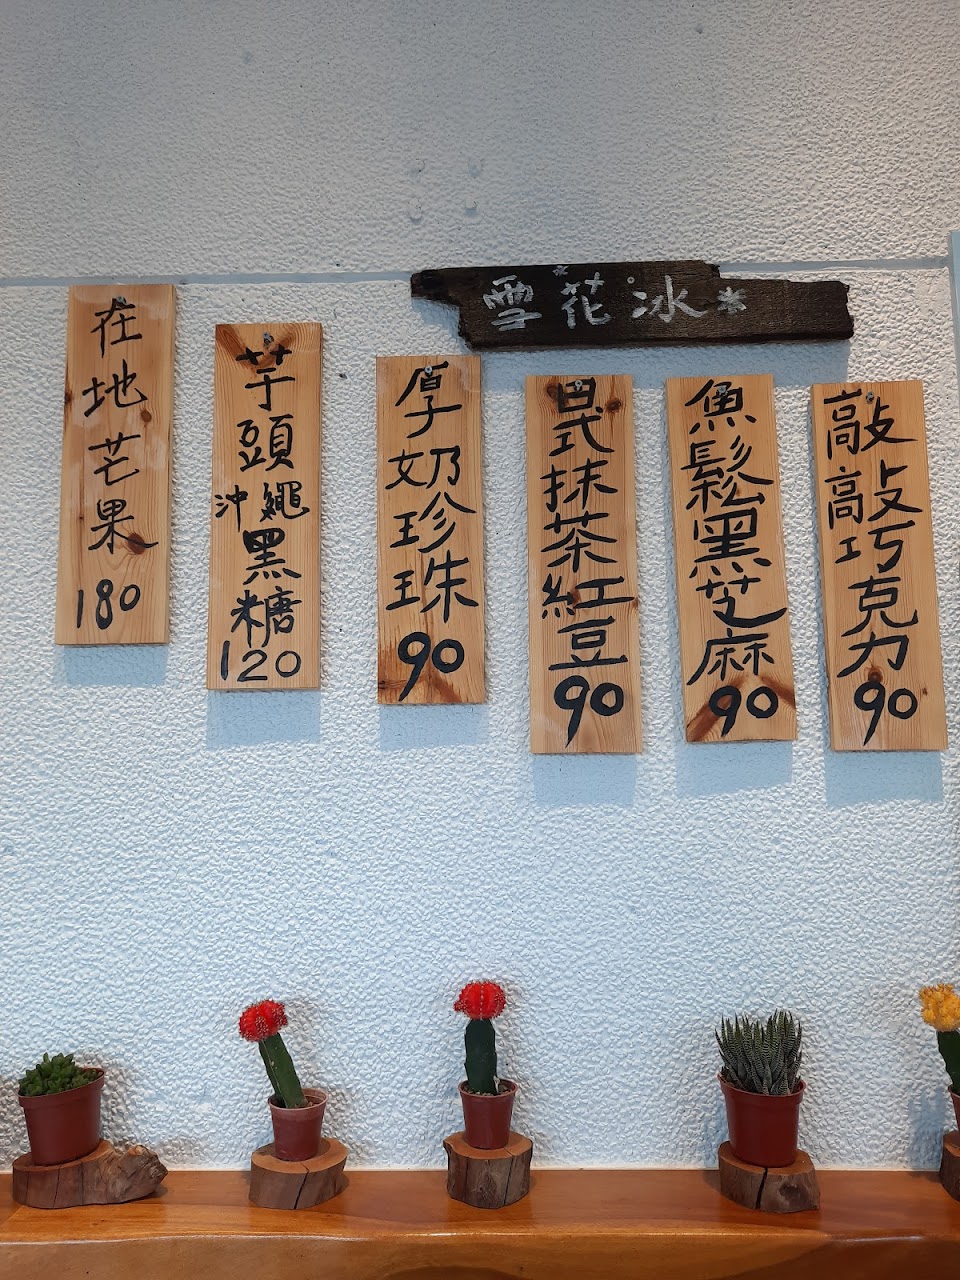 雪花冰*
在地芒果
180
芋頭
沖繩黑糖
120
厚奶珍珠
90
日式抹茶紅豆
90
魚鬆黑芝麻
90
敲敲巧克力
90